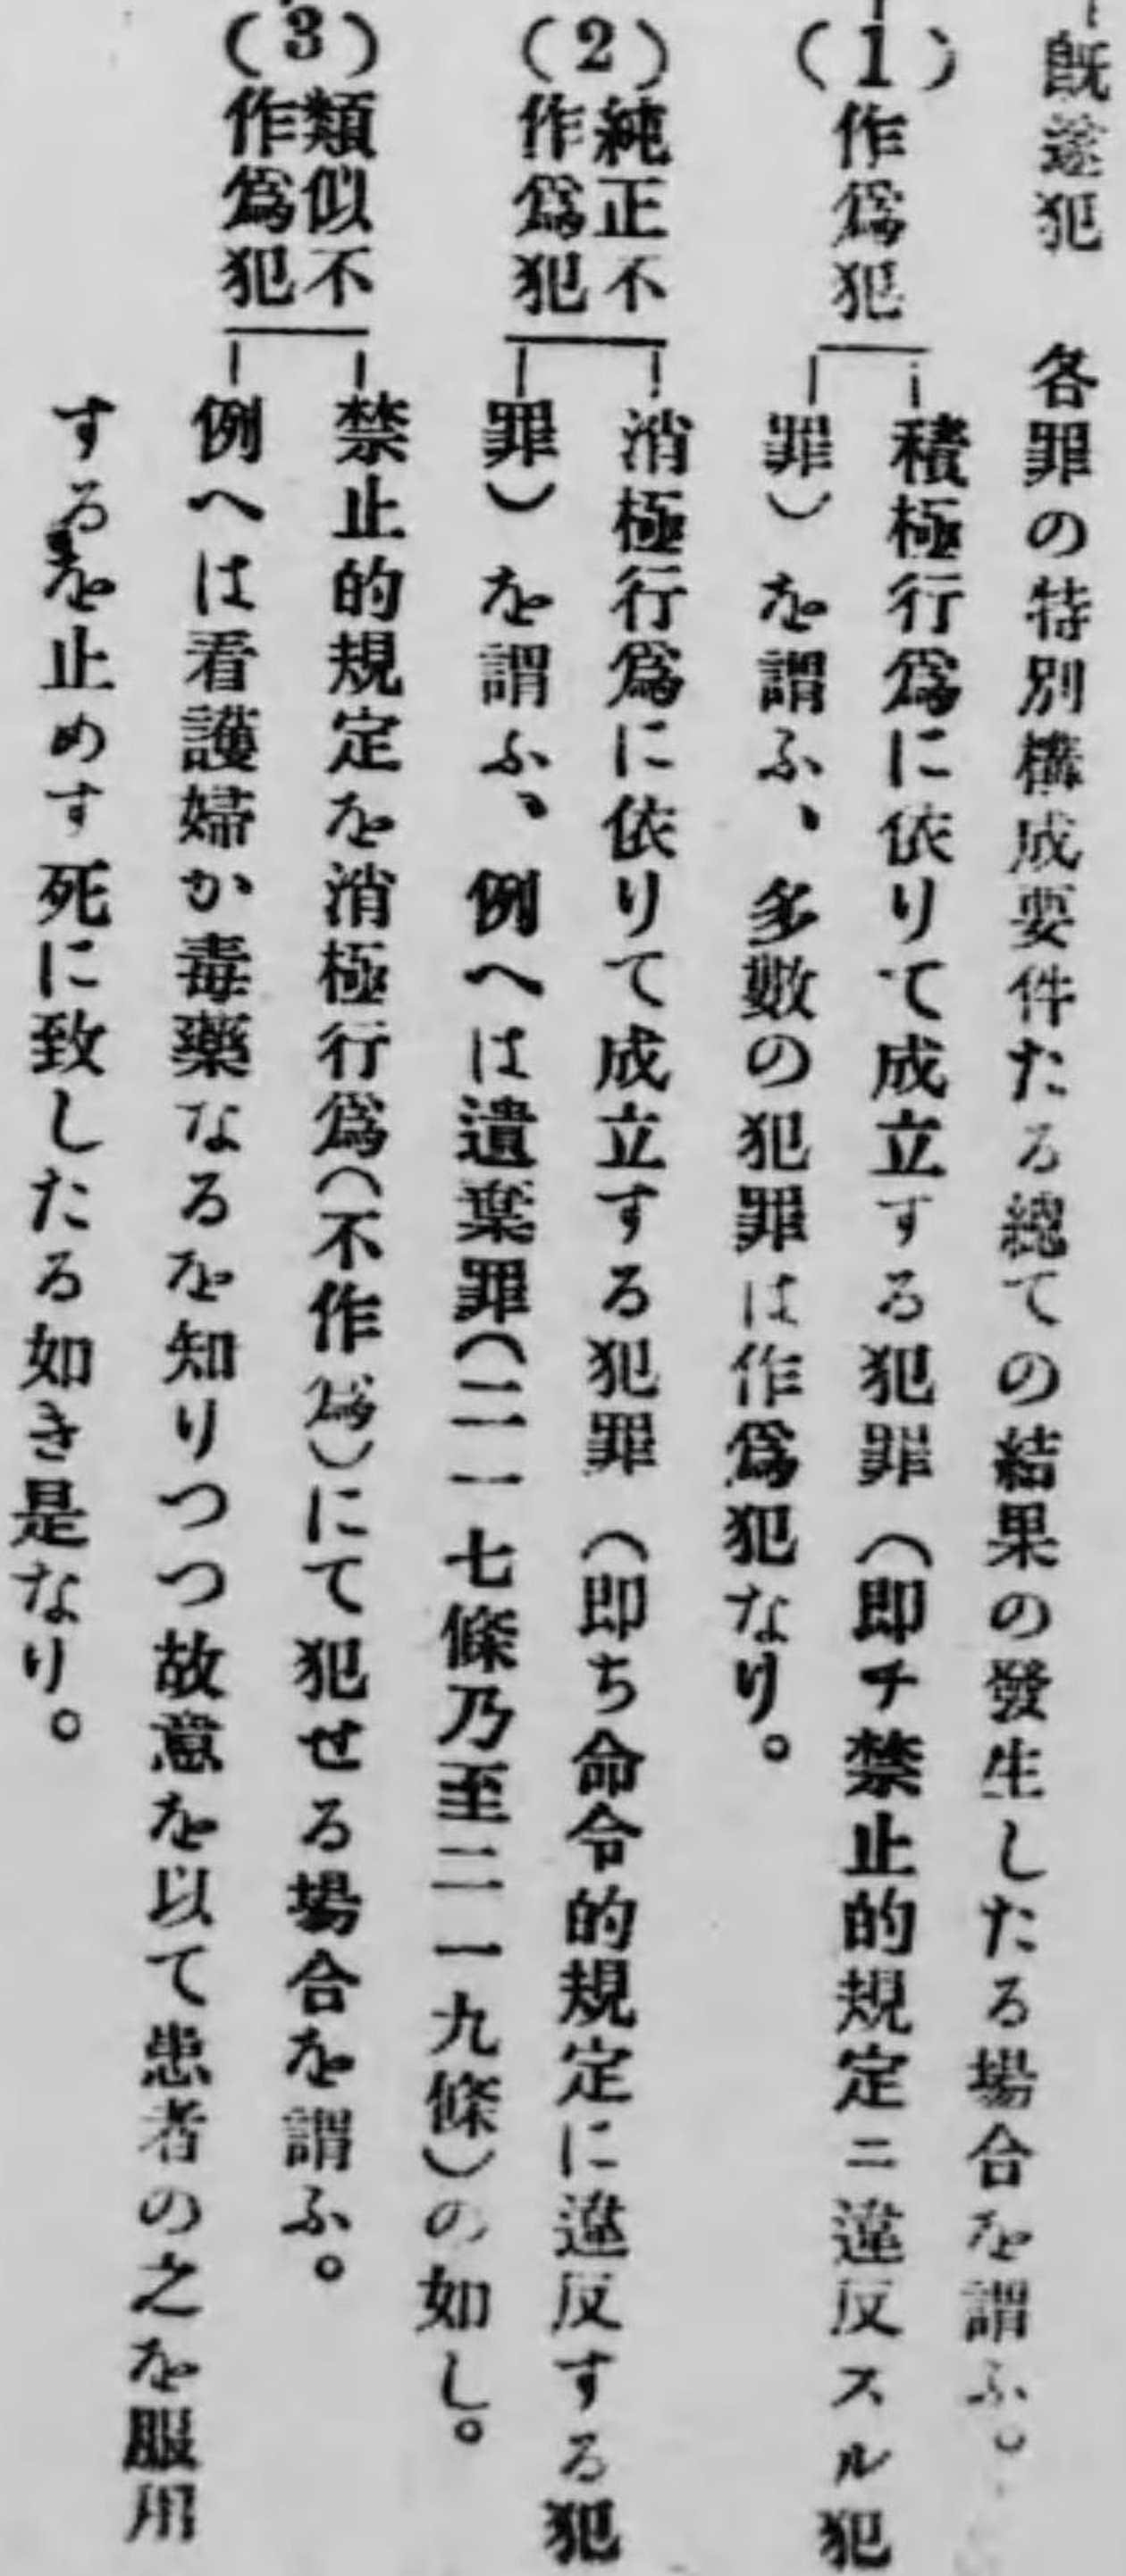 既遂犯　各罪の特別構成要件たる總ての結果の發生したる場合を謂ふ。
(1)作爲犯
積極行爲に依りて成立する犯罪（即チ禁止的規定ニ違反スル犯
罪）を謂ふ、多數の犯罪は作爲犯なり。
(2)純正不
作爲犯
消極行爲に依りて成立する犯罪（即ち命令的規定に違反する犯
罪）を謂ふ、例へは遺棄罪（二一七條乃至二一九條）の如し。
(3)類似不
作爲犯
禁止的規定を消極行爲（不作爲）にて犯せる場合を謂ふ。
例へは看護婦か毒藥なるを知りつつ故意を以て患者の之を服用
するを止めす死に致したる如き是なり。